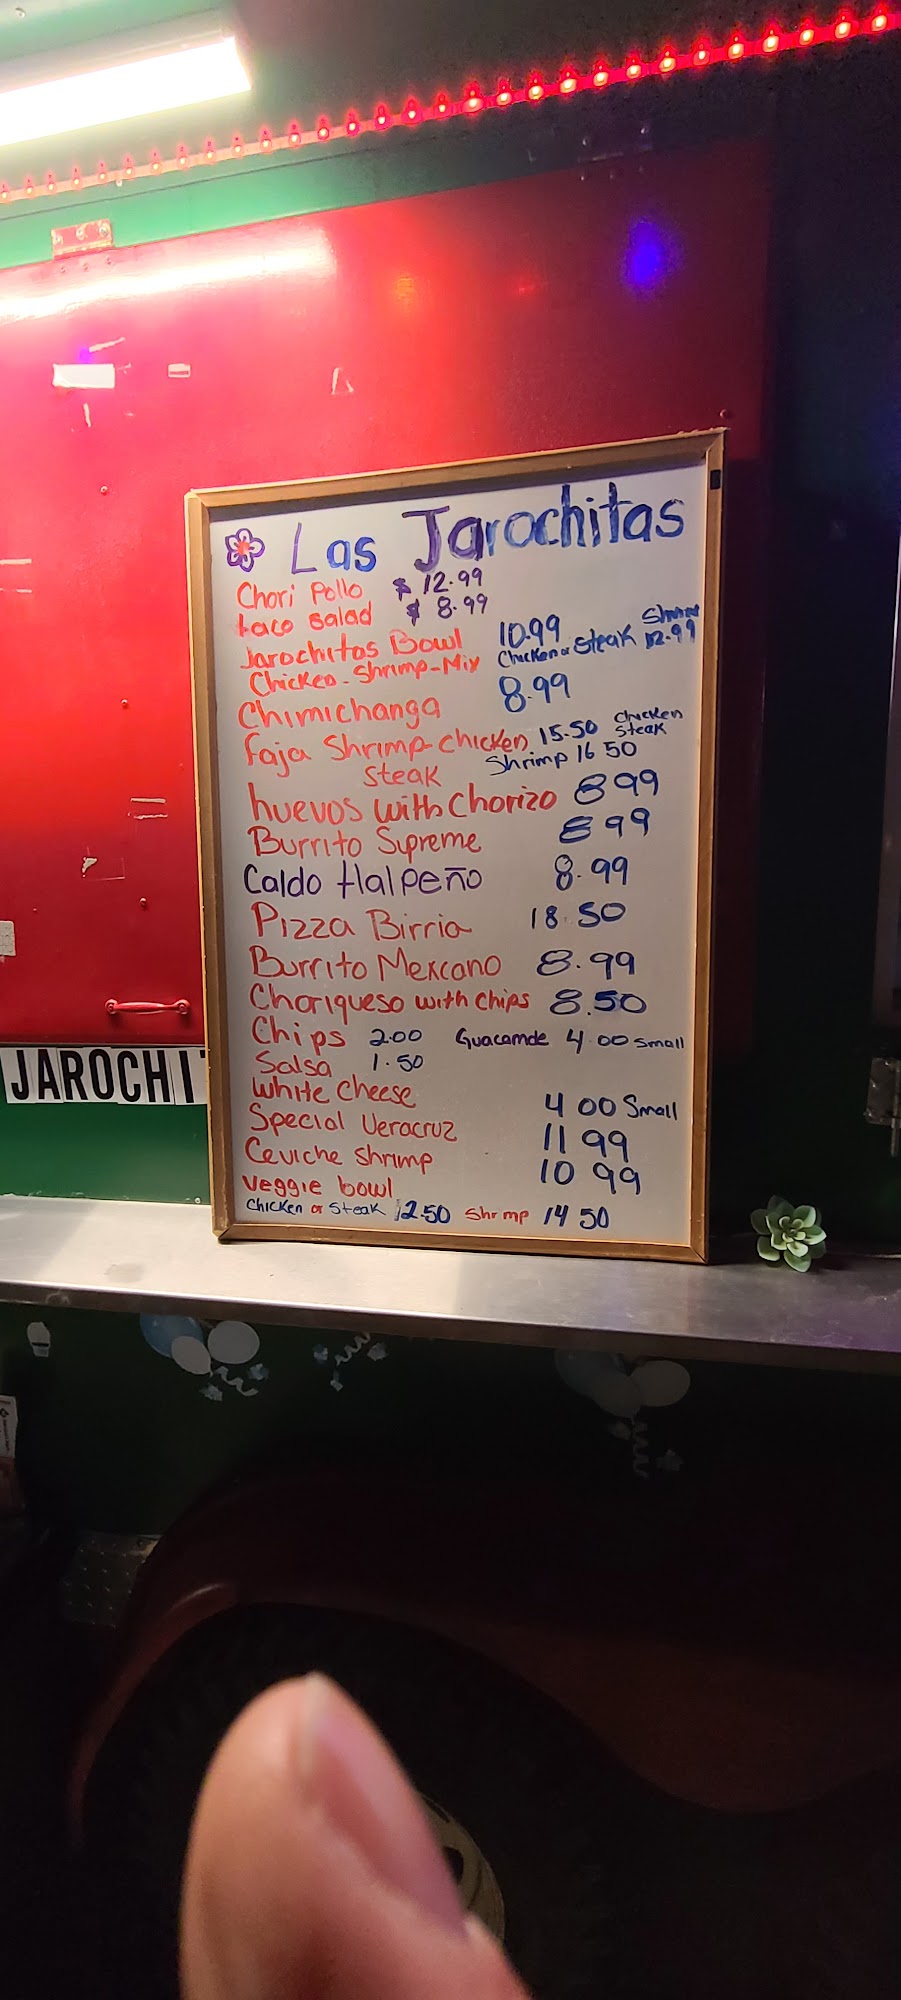 Las Jarochitas
Chori Pollo $ 12.99
taco salad $ 8.99
Jarochitas Bowl 10.99
Chicken - Shrimp-Mix Chicken or Steak Shrimp 12.99
Chimichanga 8.99
Faja Shrimp-chicken 15.50 chicken steak
steak Shrimp 16 50
huevos with Chorizo 8 99
Burrito Supreme 8 99
Caldo tlalpeño 8.99
Pizza Birria 18.50
Burrito Mexcano 8.99
Choriqueso with chips 8.50
Chips 2.00 Guacamole 4.00 small
Salsa 1.50
White Cheese 4 00 Small
Special Veracruz 11 99
Ceviche shrimp 10 99
veggie bowl
Chicken or Steak 12.50 Shrimp 14 50
JAROCHI